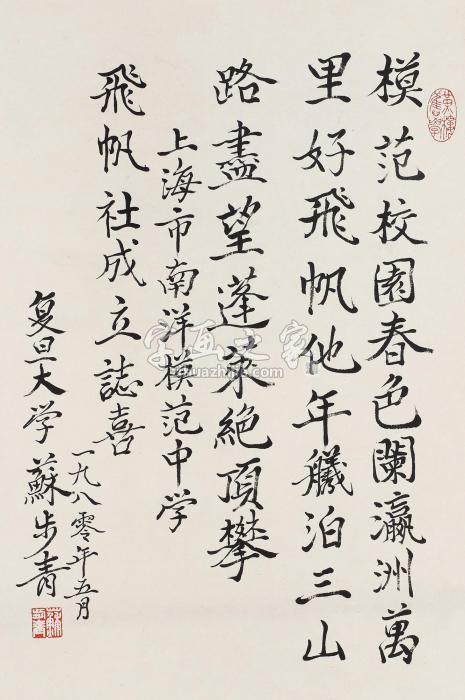 模范校園春色闌瀛洲萬
里好飛帆他年艤泊三山
路盡望蓬萊絕頂攀
上海市南洋模范中学
飛帆社成立誌喜
复旦大学蘇步青
一九八零年五月
字画之家